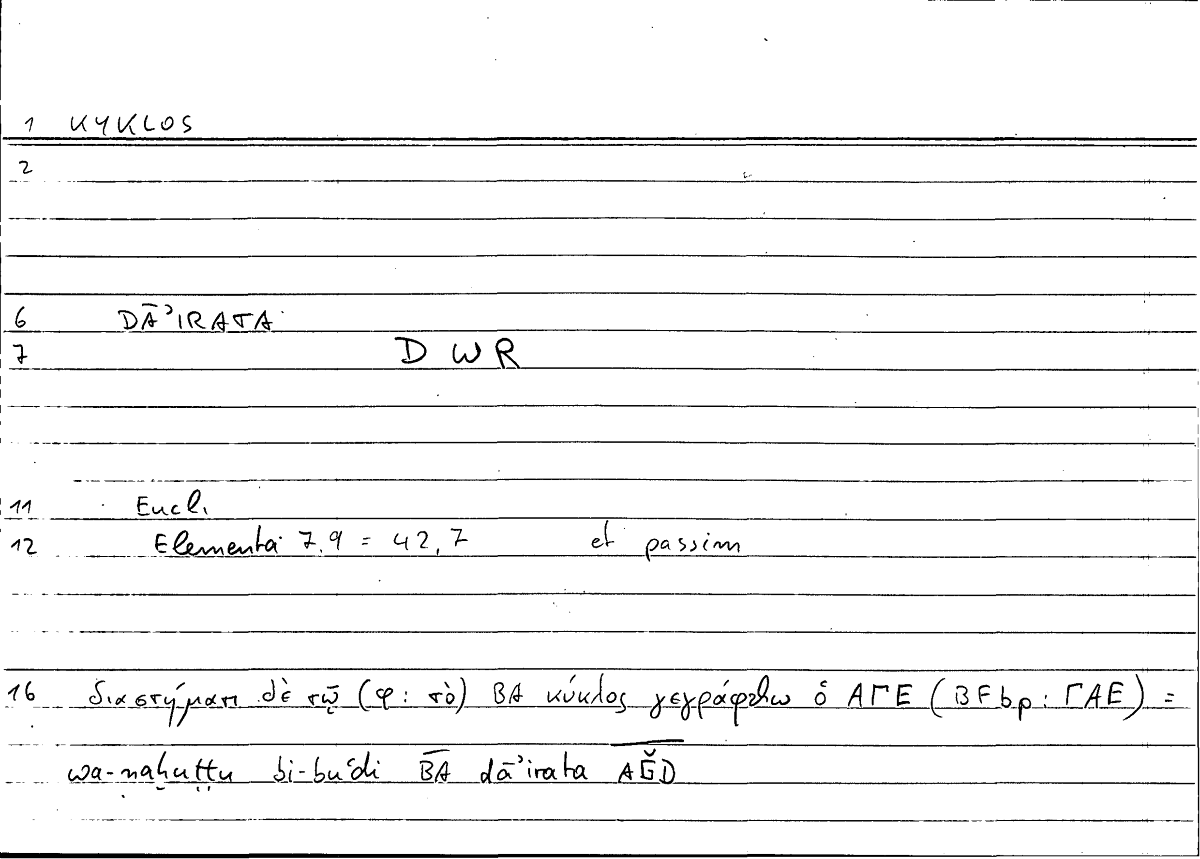 1 KYKLOS
2
6 DĀʾIRATA
7 D W R
11 Eucl.
12 Elementa 7.9 = 42,7 et passim
16 διαστήματι δὲ τῷ (φ: τὸ) BA κύκλος γεγράφθω ὁ ΑΓΕ (BFbp: ΓΑΕ) =
wa-naḫuṭṭu bi-buʿdi B͞A͞ dāʾirata A͞Ǧ͞D͞